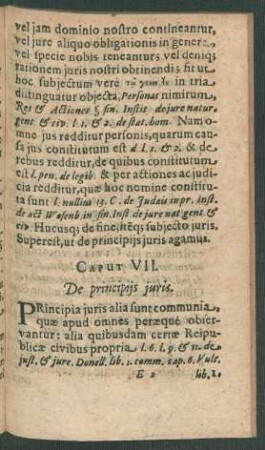 vel jam dominio nostro contineantur,
vel jure aliquo obligationis in genere
vel specie nobis teneantur; vel deniq;
rationem juris nostri obtinendi; fit ut
hoc subjectum vere in tria
distinguatur objecta, Personas nimirum,
Res & Actiones § fin. Instit de jure natur
gent. & civ. l. 1. & 2. de stat. hom. Nam o-
mne jus redditur personis, quarum cau-
sa jus constitutum est d. l. 1. & 2. & de
rebus redditur, de quibus constitutum
est l. pen. de legib. & per actiones ac judi-
cia redditur, quæ hoc nomine constitu-
ta sunt l. nullus 13. C. de Judæis in pr. inst.
de act Wesenb. in fin. Inst de jure nat gent. &
civ. Hucusq; de fine, itéq; subjecto juris.
Superest, ut de principijs juris agamus.
CAPUT VII.
De principijs juris.
PRincipia juris alia sunt communia,
quæ apud omnes peræquè obser-
vantur: alia quibusdam certæ Reipu-
blicæ civibus propria l. 6. l. 9. & 11. de
just. & jure. Donell. lib. 1. comm. cap. 6. Vult.
E 2 lib. 1.